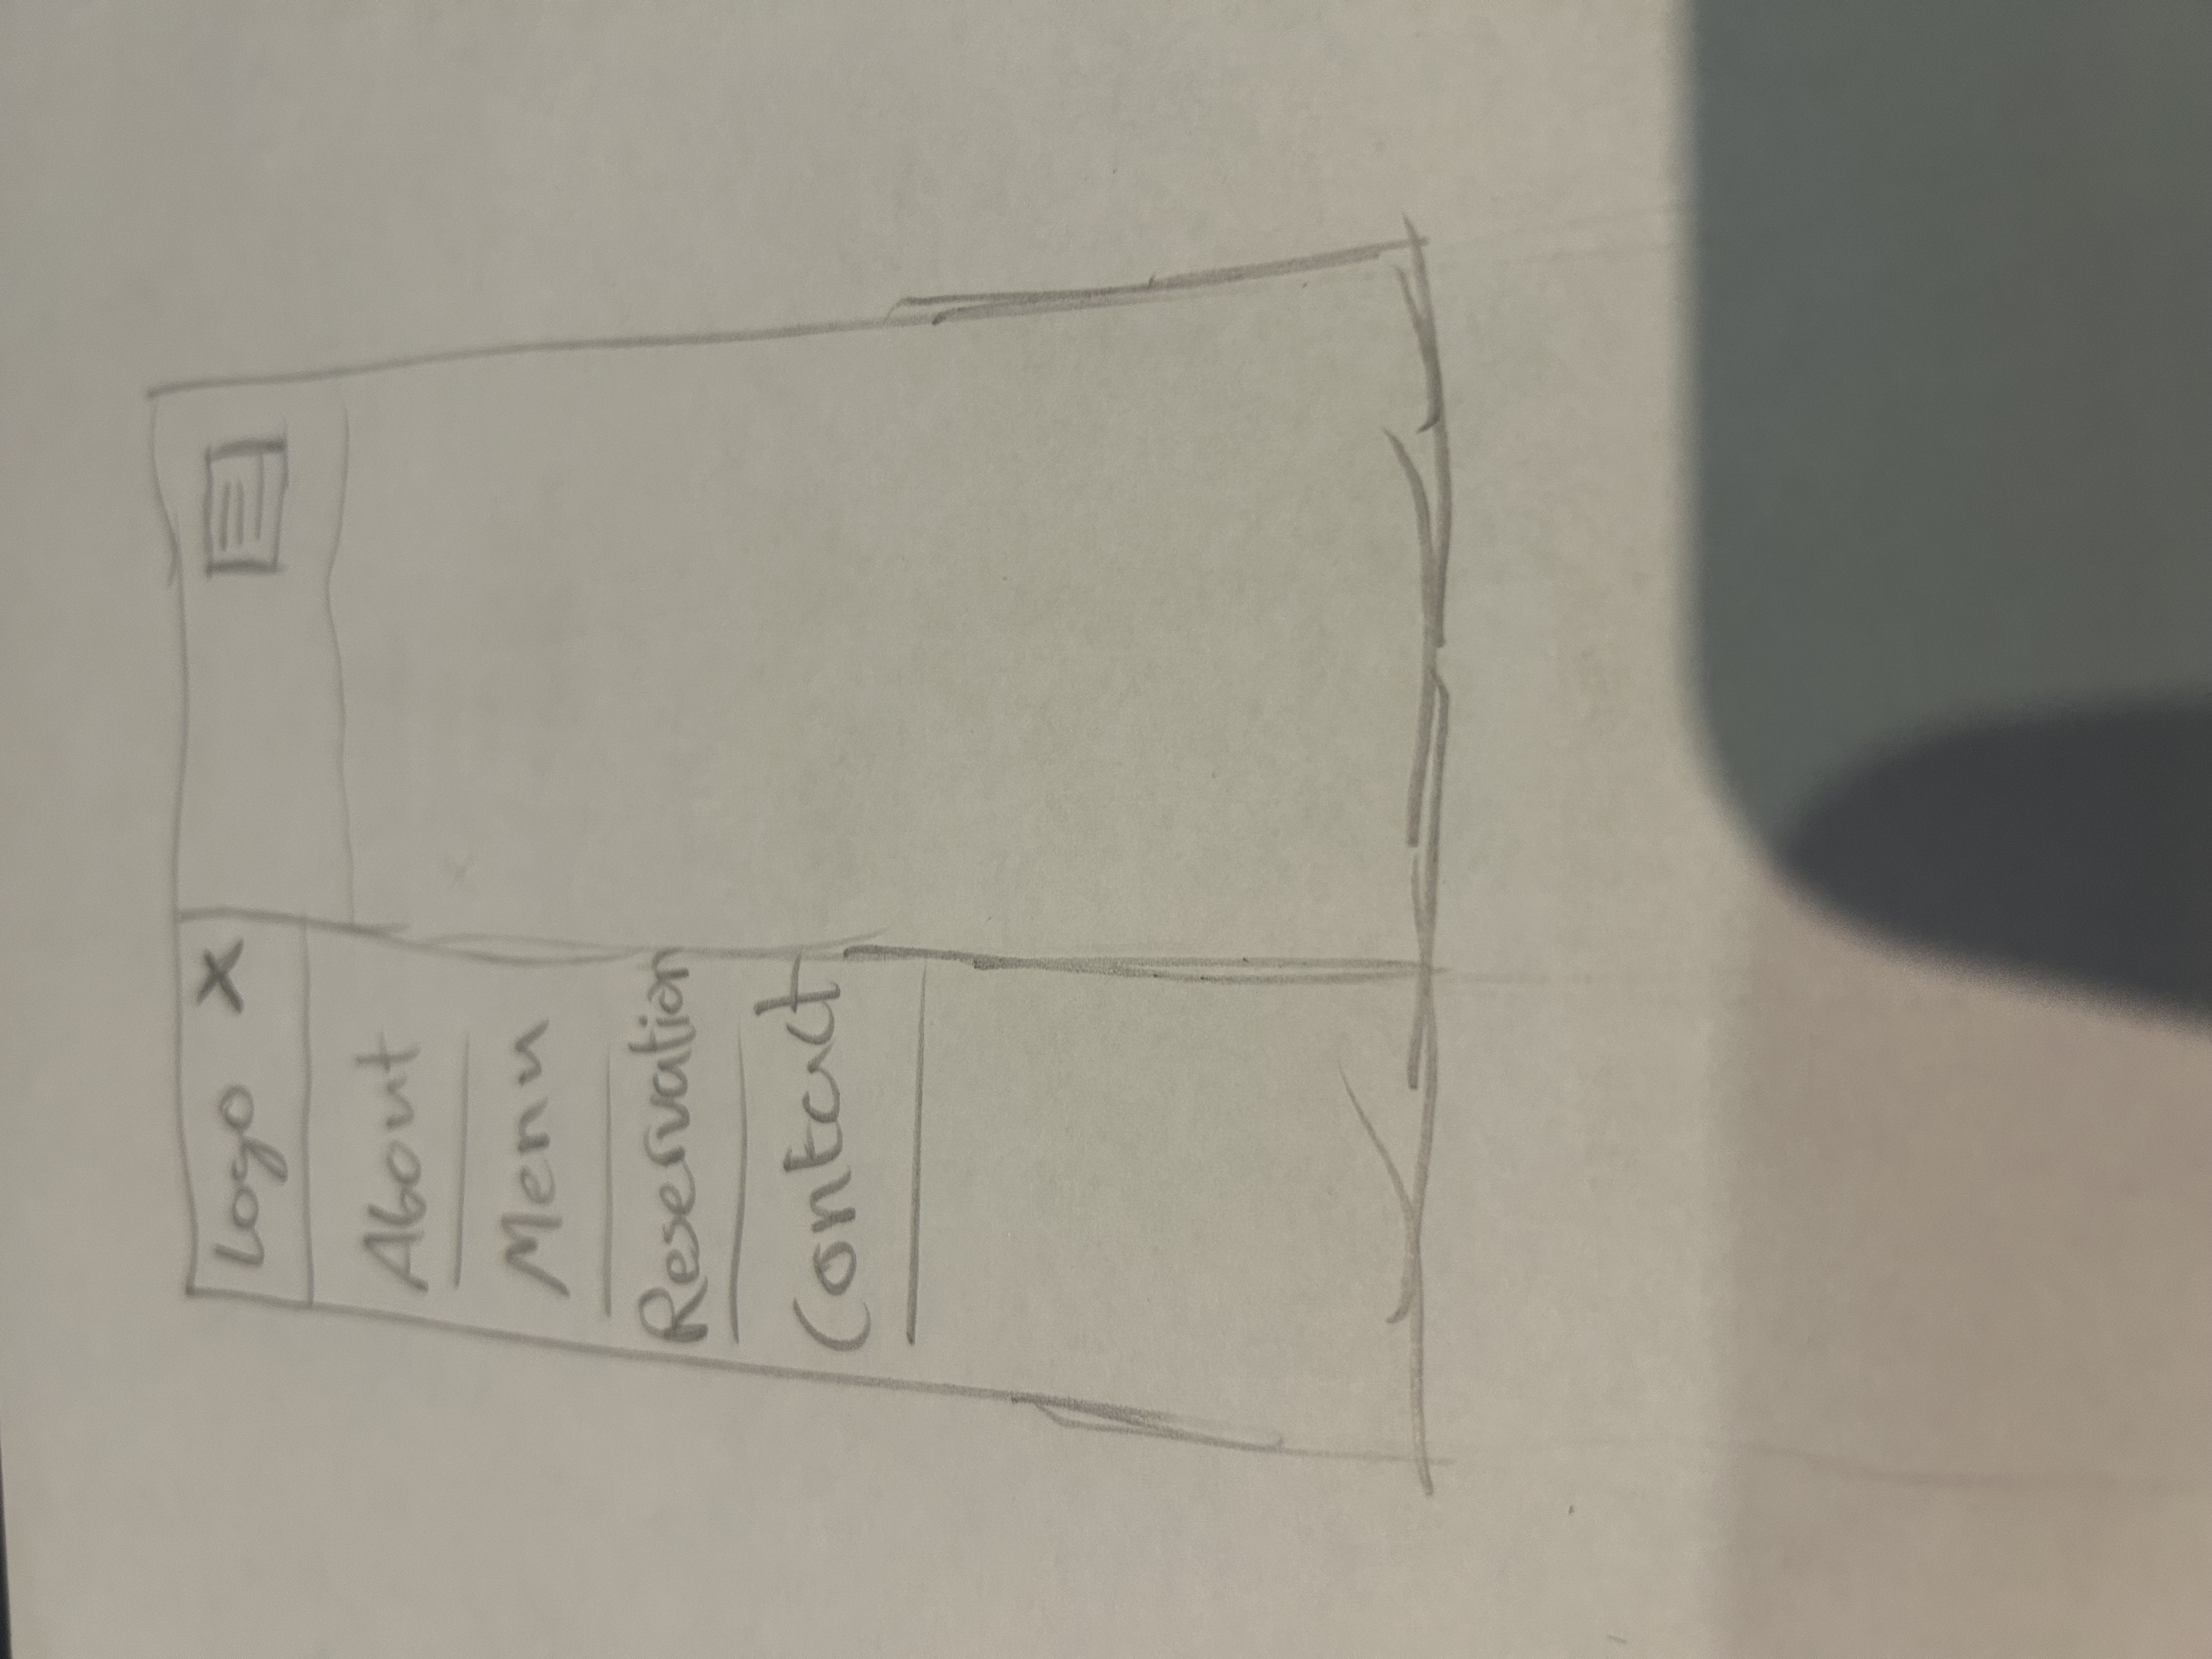 Logo X
About
Menu
Reservation
Contact